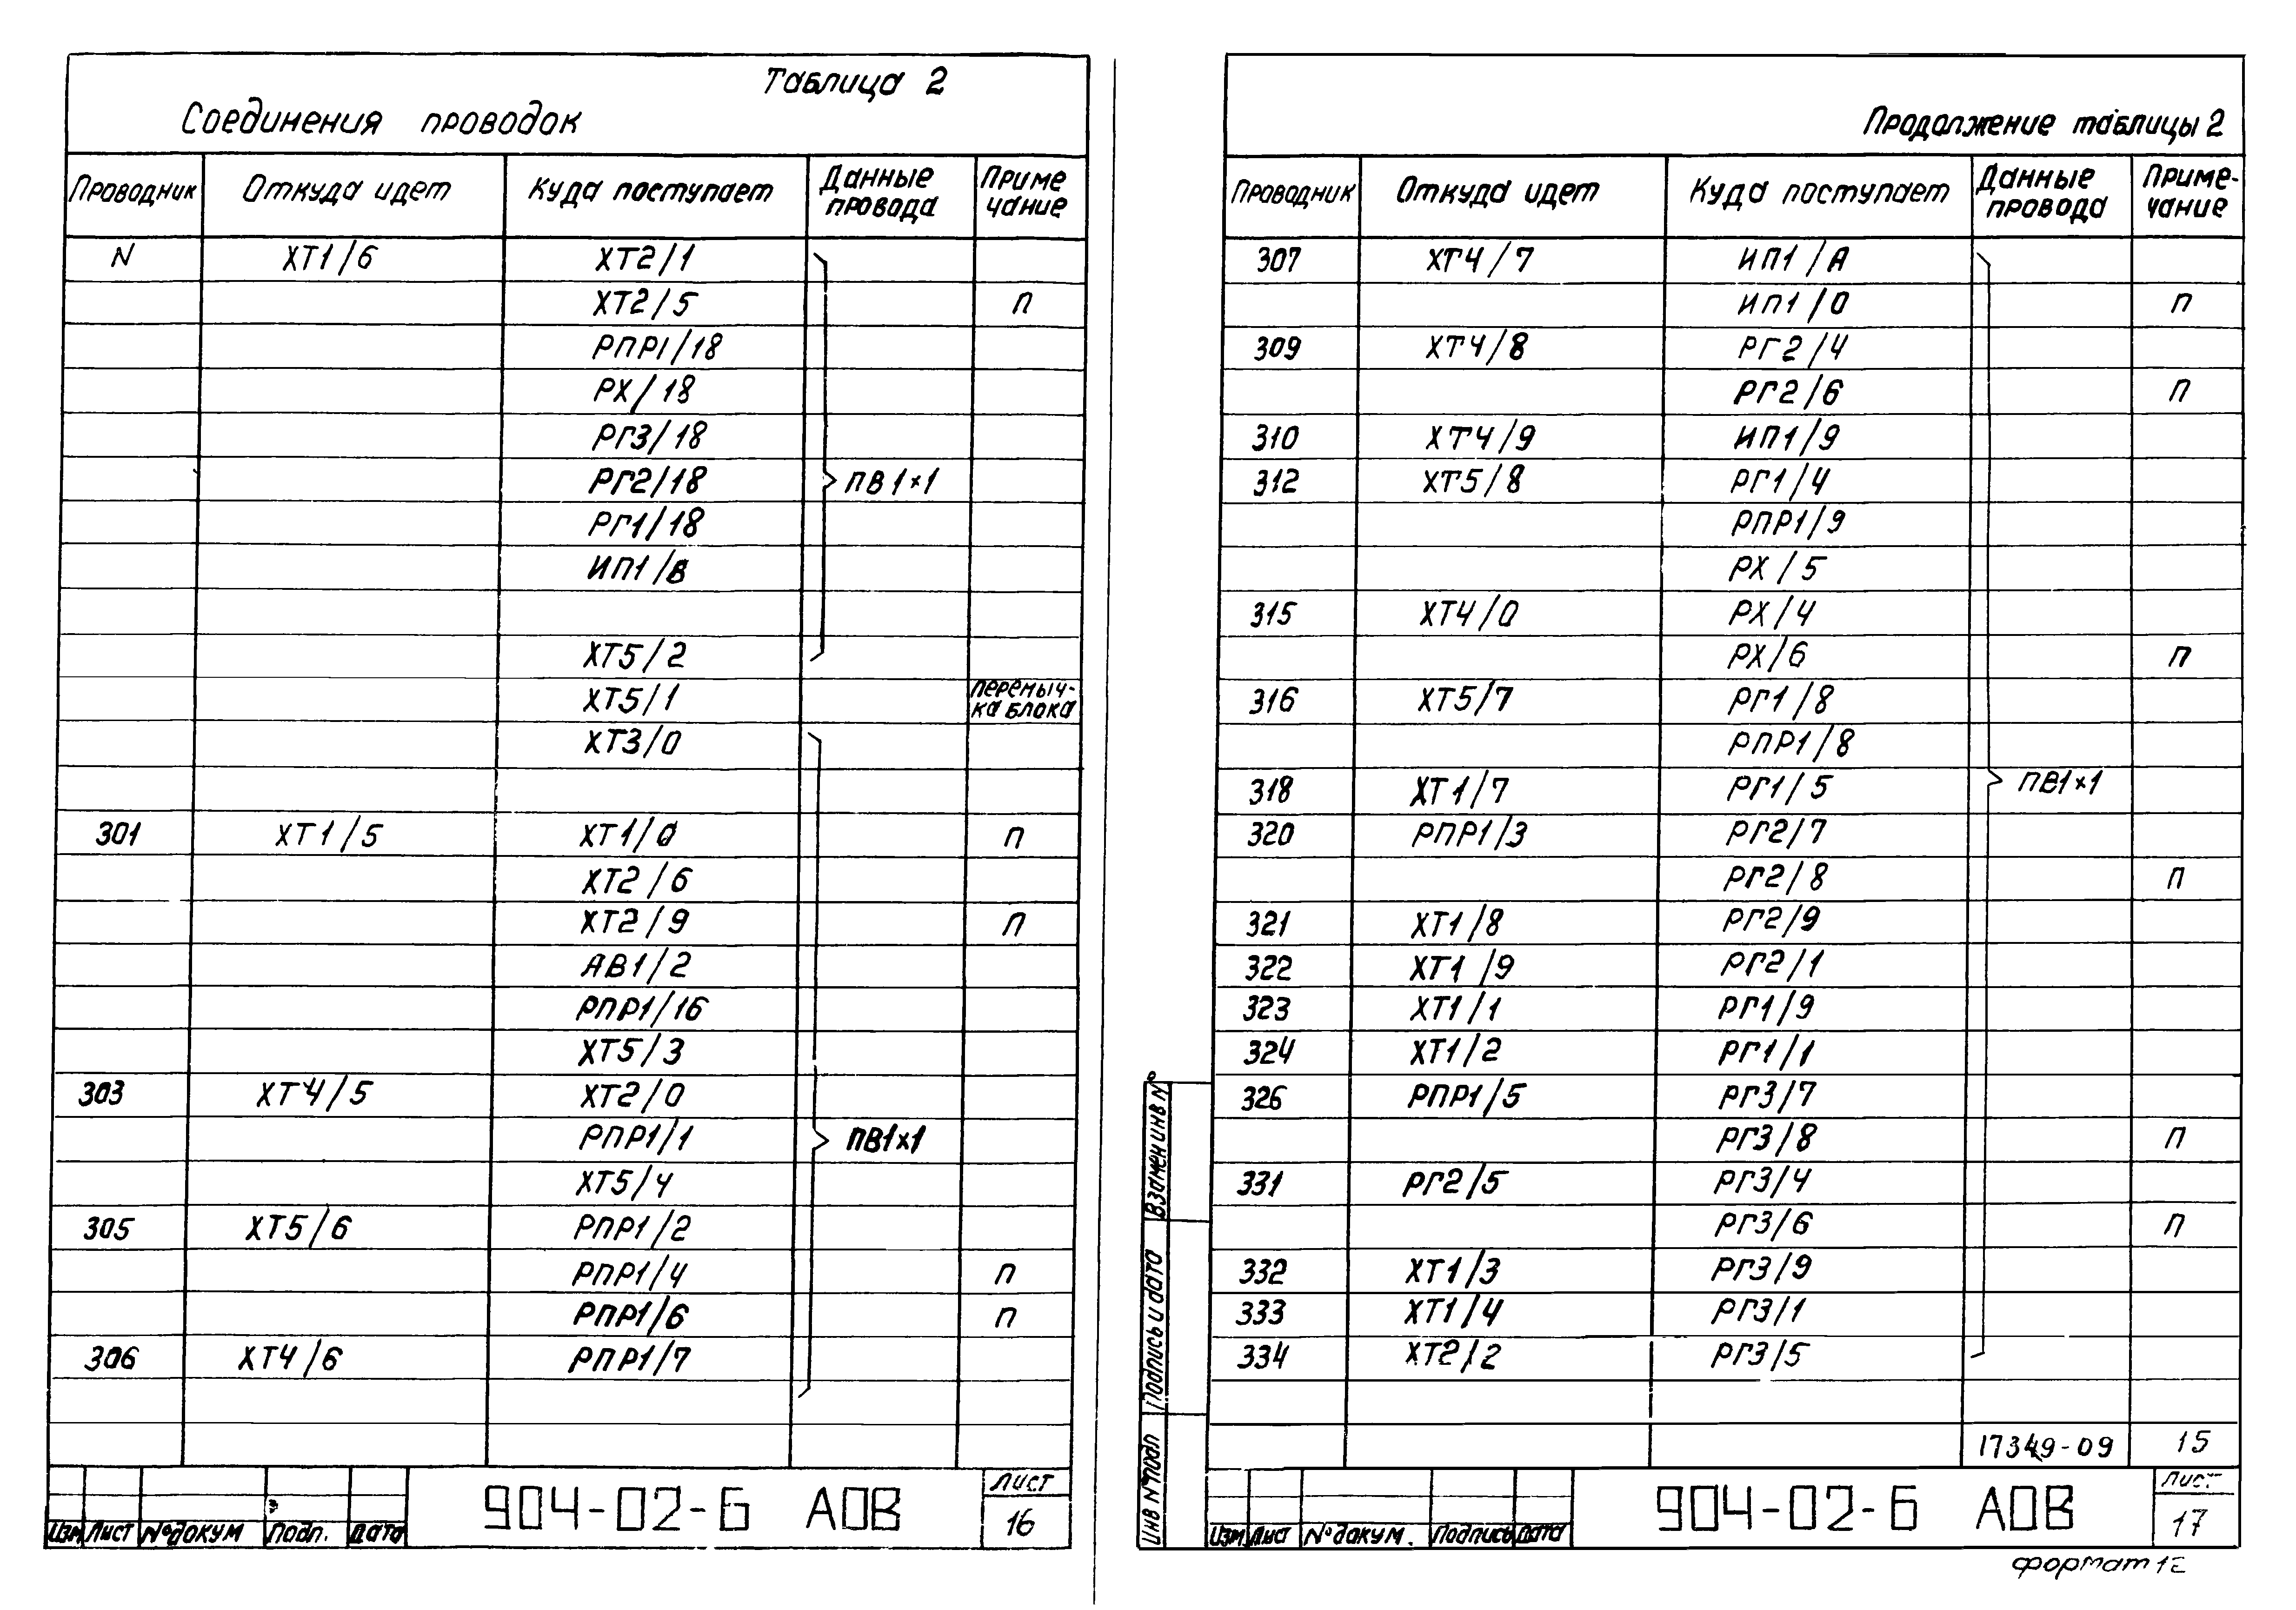 Таблица 2
Соединения проводок
Проводник Откуда идет Куда поступает Данные провода Приме чание
N ХТ1/6 ХТ2/1
ХТ2/5 П
РПР1/18
РХ/18
РГ3/18
РГ2/18 ПВ1×1
РГ1/18
ИП1/В
ХТ5/2
ХТ5/1 перемыч-
ка блока
ХТ3/0
301 ХТ1/5 ХТ1/0 П
ХТ2/6
ХТ2/9 П
АВ1/2
РПР1/16
ХТ5/3
303 ХТ4/5 ХТ2/0
РПР1/1 ПВ1×1
ХТ5/4
305 ХТ5/6 РПР1/2
РПР1/4 П
РПР1/6 П
306 ХТ4/6 РПР1/7
Изм Лист №докум Подп. Дата
904-02-6 АОВ
Лист
16
Продолжение таблицы 2
Проводник Откуда идет Куда поступает Данные провода Приме-чание
307 ХТ4/7 ИП1/А
ИП1/0 П
309 ХТ4/8 РГ2/4
РГ2/6 П
310 ХТ4/9 ИП1/9
312 ХТ5/8 РГ1/4
РПР1/9
РХ/5
315 ХТ4/0 РХ/4
РХ/6 П
316 ХТ5/7 РГ1/8
РПР1/8
318 ХТ1/7 РГ1/5 ПВ1×1
320 РПР1/3 РГ2/7
РГ2/8 П
321 ХТ1/8 РГ2/9
322 ХТ1/9 РГ2/1
323 ХТ1/1 РГ1/9
324 ХТ1/2 РГ1/1
326 РПР1/5 РГ3/7
РГ3/8 П
331 РГ2/5 РГ3/4
РГ3/6 П
332 ХТ1/3 РГ3/9
333 ХТ1/4 РГ3/1
334 ХТ2/2 РГ3/5
17349-09 15
Взамен инв №
Подпись и дата
Инв №подл
Изм Лист №докум. Подпись Дата
904-02-6 АОВ
Лист
17
формат